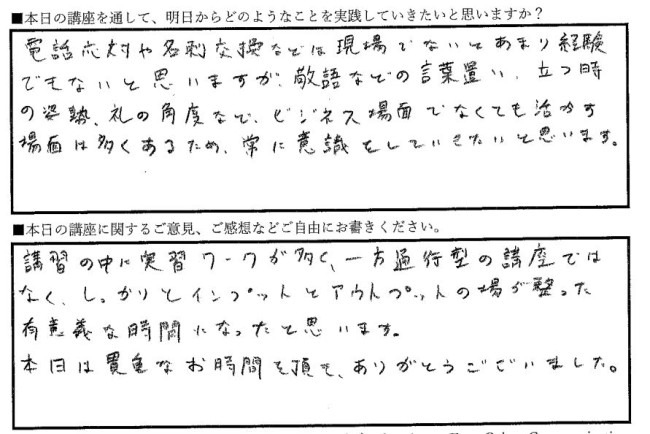 ■本日の講座を通して、明日からどのようなことを実践していきたいと思いますか？
電話応対や名刺交換などは現場でないとあまり経験
できないと思いますが、敬語などの言葉遣い、立つ時
の姿勢、礼の角度など、ビジネス場面でなくても活かす
場面は多くあるため、常に意識をしていきたいと思います。
■本日の講座に関するご意見、ご感想などご自由にお書きください。
講習の中に実習ワークが多く、一方通行型の講座では
なく、しっかりとインプットとアウトプットの場が整った
有意義な時間になったと思います。
本日は貴重なお時間を頂き、ありがとうございました。